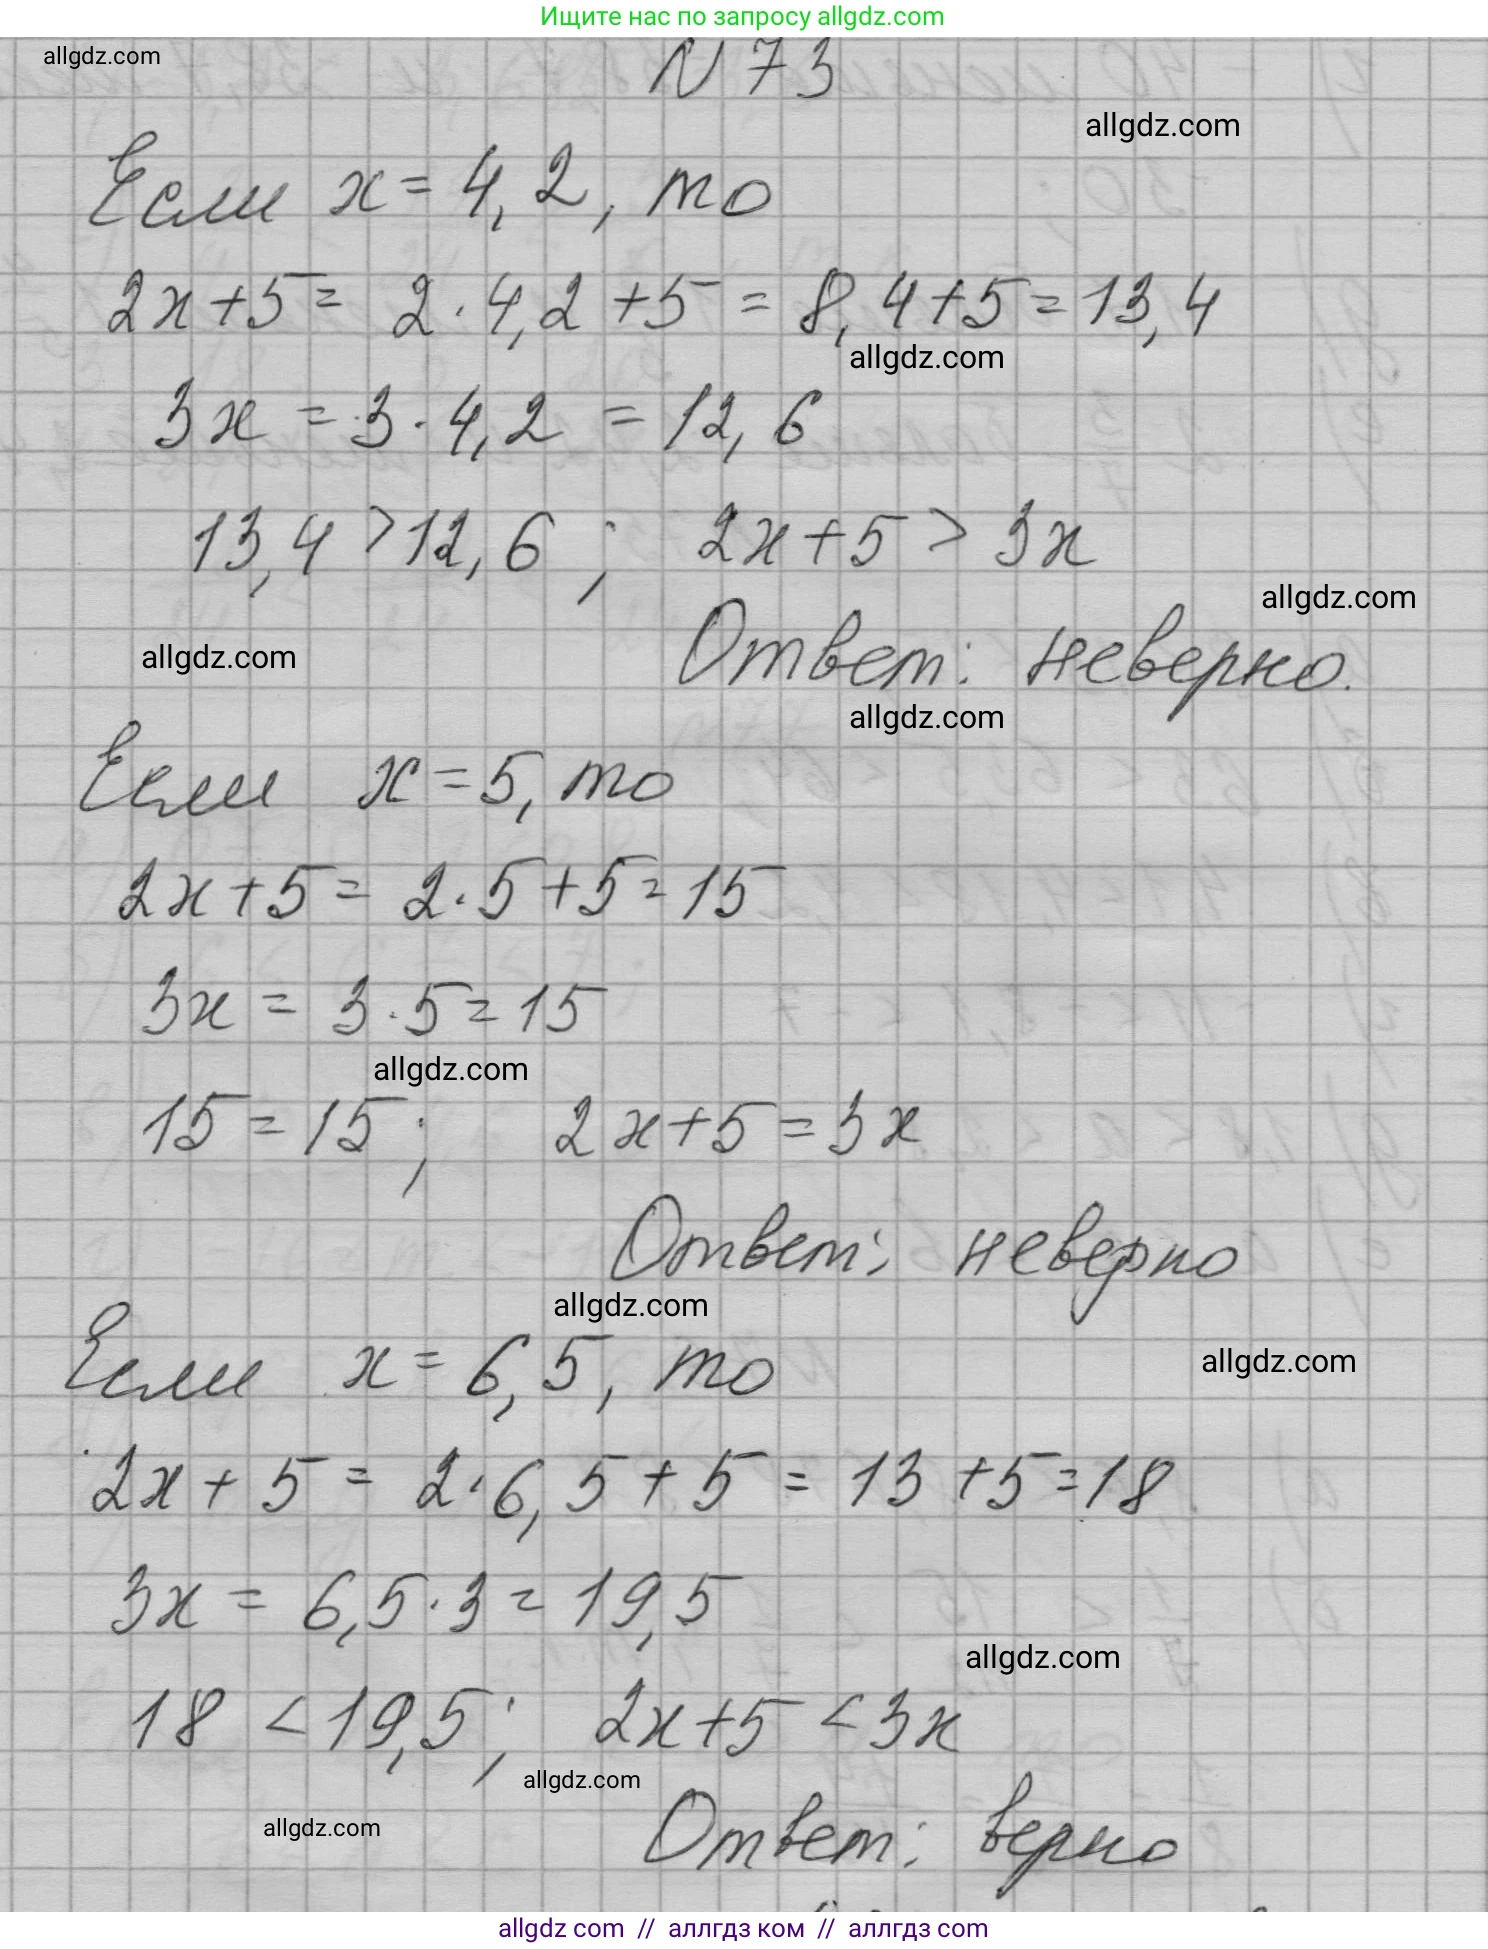 Ищите нас по запросу allgdz.com
allgdz.com
N 73
allgdz.com
Если x = 4,2, то
2x+5 = 2·4,2+5 = 8,4+5 = 13,4
allgdz.com
3x = 3·4,2 = 12,6
13,4 > 12,6; 2x+5 > 3x
allgdz.com
allgdz.com
Ответ: неверно.
allgdz.com
Если x = 5, то
2x+5 = 2·5+5 = 15
3x = 3·5 = 15
allgdz.com
15 = 15; 2x+5 = 3x
Ответ: неверно
allgdz.com
Если x = 6,5, то
allgdz.com
2x+5 = 2·6,5+5 = 13+5 = 18
3x = 6,5·3 = 19,5
allgdz.com
18 < 19,5; 2x+5 < 3x
allgdz.com
allgdz.com
Ответ: верно
allgdz com // аллгдз ком // аллгдз com